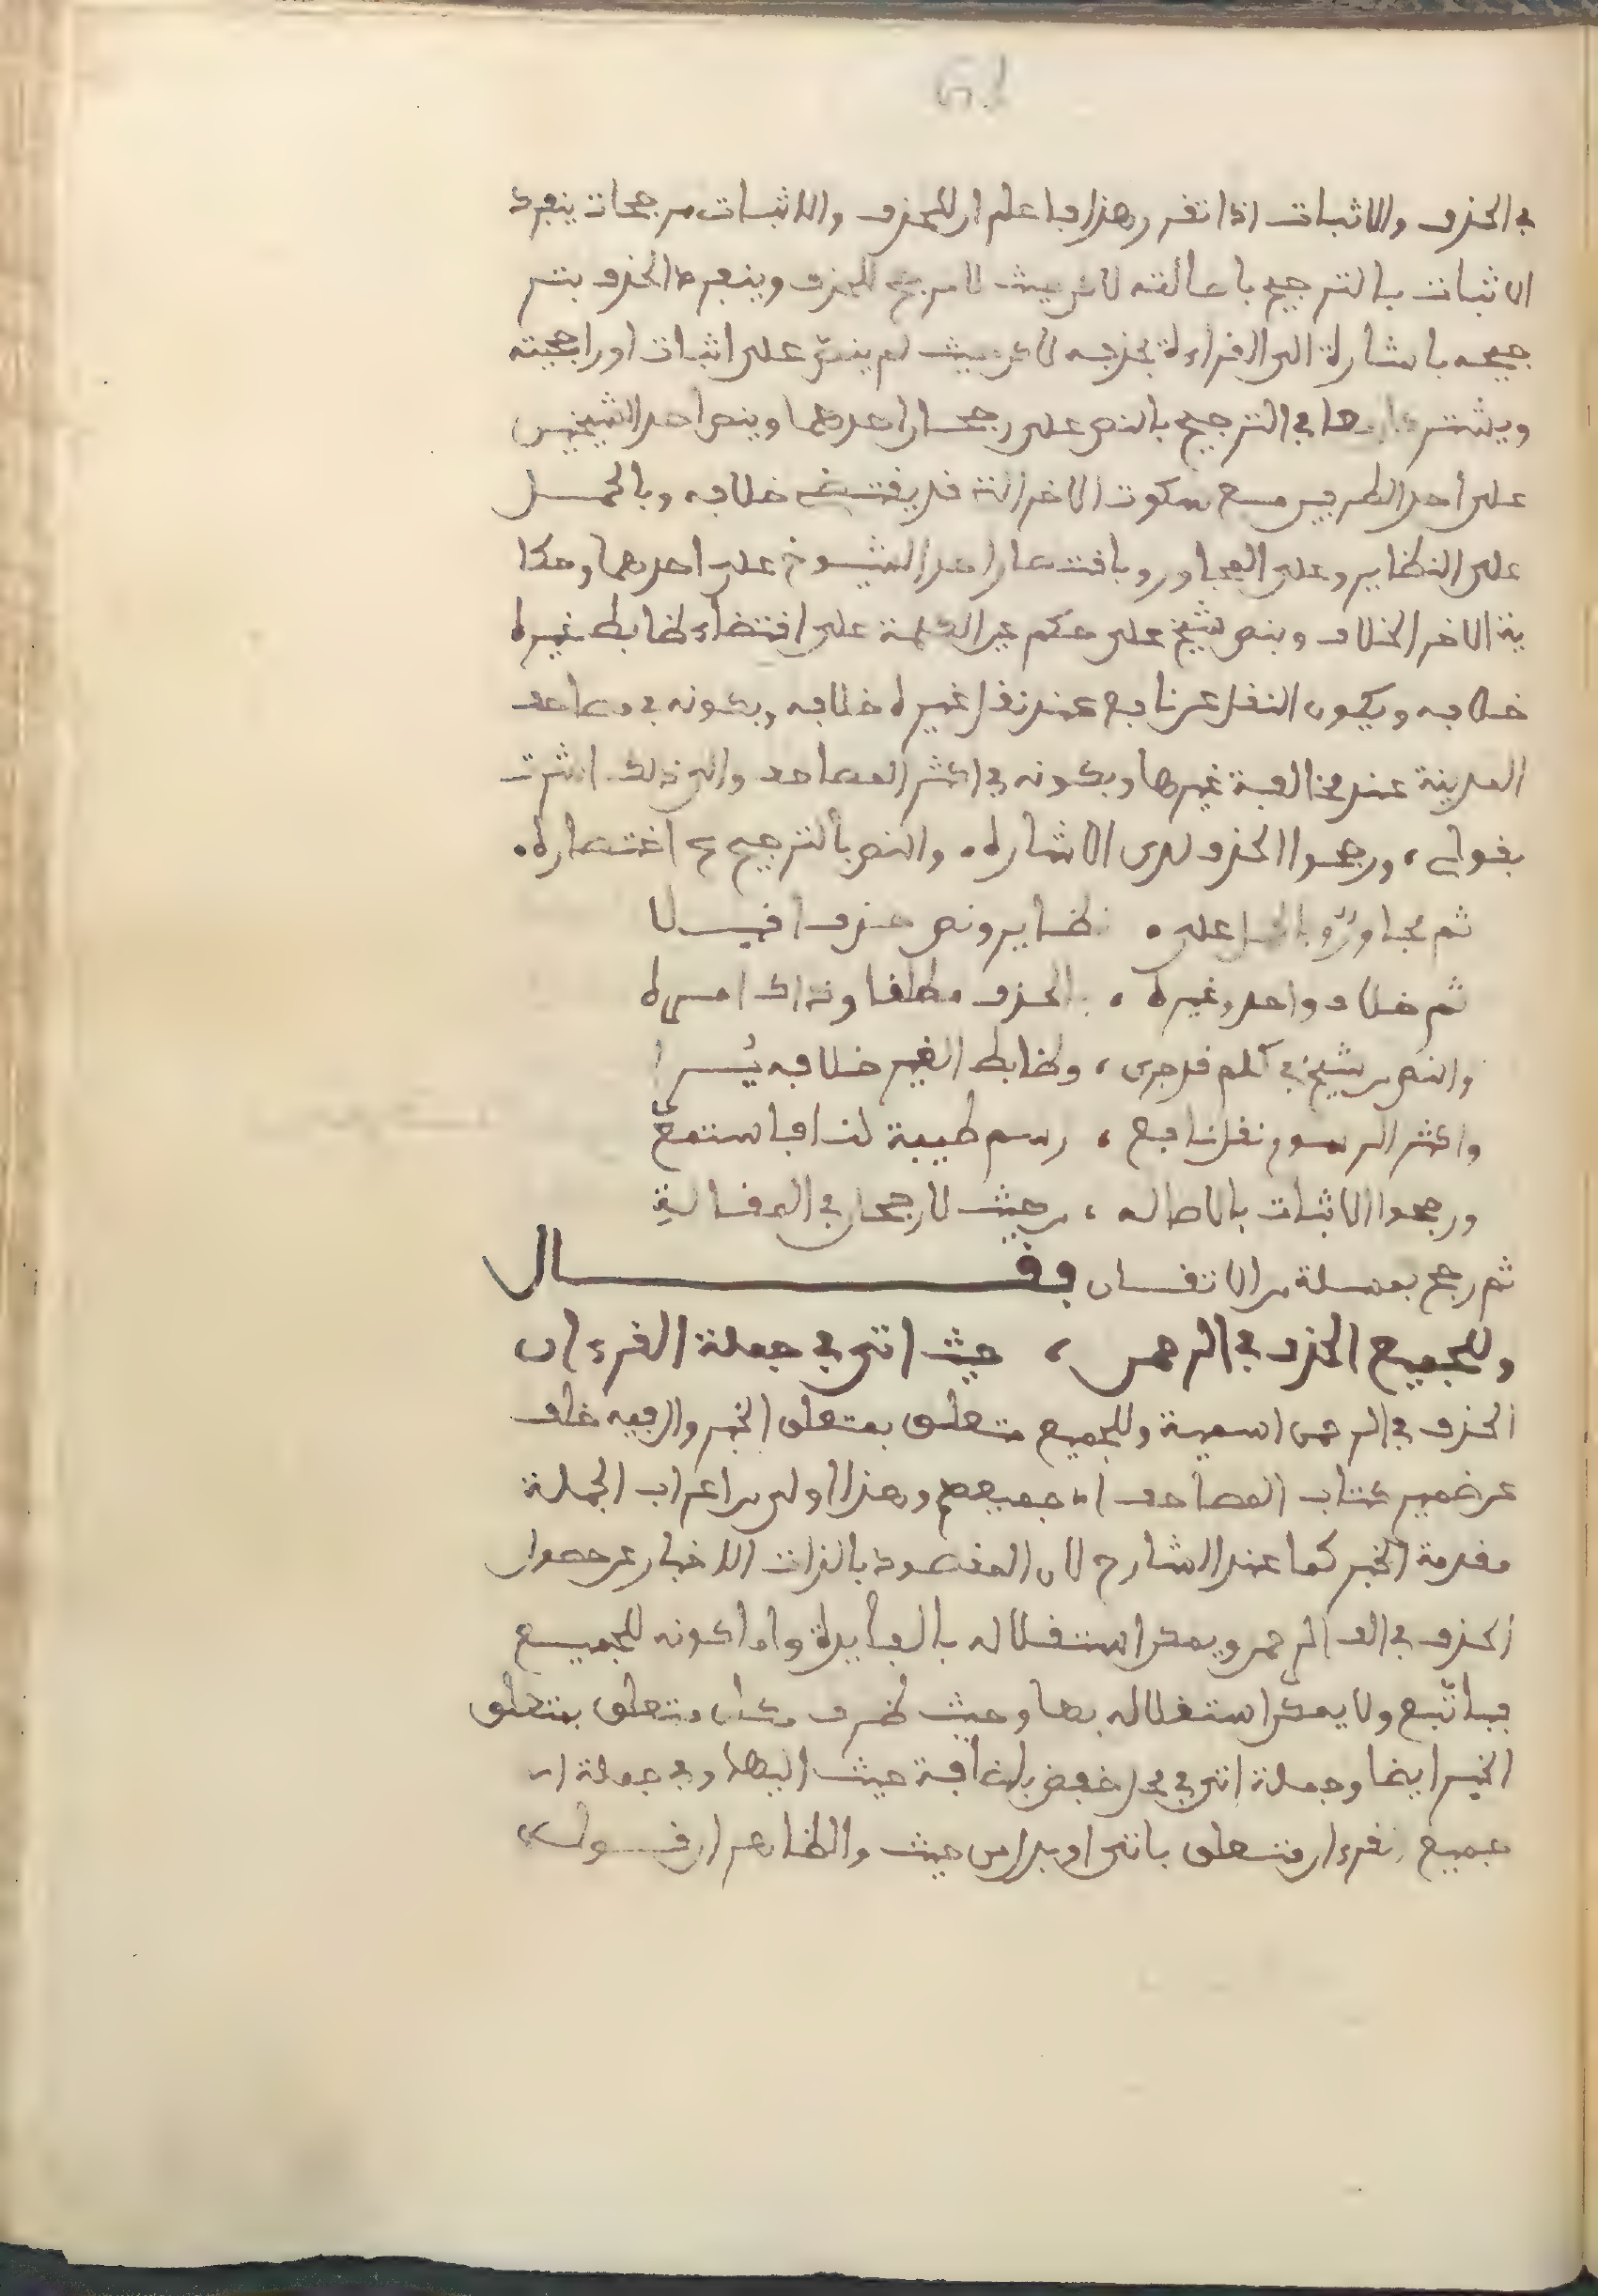 في الحذف والاثبات اذا تقرر هذا فاعلم ان للحذف والاثبات مرجحات ينفرد
الاثبات بالترجيح باصالته لاكن حيث لا مرجح للحذف وينفرد الحذف بتر
جيحه باشارة الى القراءة بحذفه لاكن حيث لم ينص على اثبات او راجحيته
ويشتركان معا في الترجيح بالنص على رجحان احدهما وبنص احد الشيخين
على احد الطرفين مع سكوت الاخر الذي قد يقتضي خلافه وبالحمل
على النظاير وعلى المجاور وباقتصار احد الشيوخ على احدهما وحكا
ية الاخر الخلاف وبنص شيخ على حكم عين الكلمة على اقتضاء ضابط غيره
خلافه ويكون النقل عن نافع عند نقل غيره خلافه وبكونه في مصاحف
المدينة عند مخالفة غيرها وبكونه في اكثر المصاحف والى ذلك اشرت
بقولي، ورجحوا الحذف لدى الاشاره. والنص بالترجيح مع اختصاره.
ثم مجاور وبالحمل على. نظاير ونص حذف اقبلا
ثم خلاف واحد وغيره. بالحذف مطلقا وذاك اسره
والنص من شيخ في كلم قد جرى، وضابط الغير خلافه يُسرا
واكثر الرسوم نقل نافع، رسم طيبة لنا فاستمع
ورجحوا الاثبات بالاصاله، من حيث لا رجحان في المقالة
ثم رجح بمسلة من الاتفاق فقــال
وللجميع الحذف في الرحمن، حيث اتى في جملة القرءان
الحذف في الرحمن اسمية وللجميع متعلق بمتعلق الخبر وال فيه خلف
عن ضمير كتاب المصاحف اي جميعهم وهذا اولى من اعراب الجملة
مقدمة الخبر كما عند الشارح لان المقصود بالذات الاخبار عن حصول
الحذف في الف الرحمن ويمكن استقلاله بالفايدة واما كونه للجميع
فبالتبع ولا يمكن استقلاله بها وحيث ظرف مكان متعلق بمتعلق
الخبر ايضا وجملة اتى في محل خفض باضافة حيث اليها وفي جملة اي
جميع القرءان متعلق باتى او بدل من حيث والظاهر ان قوله